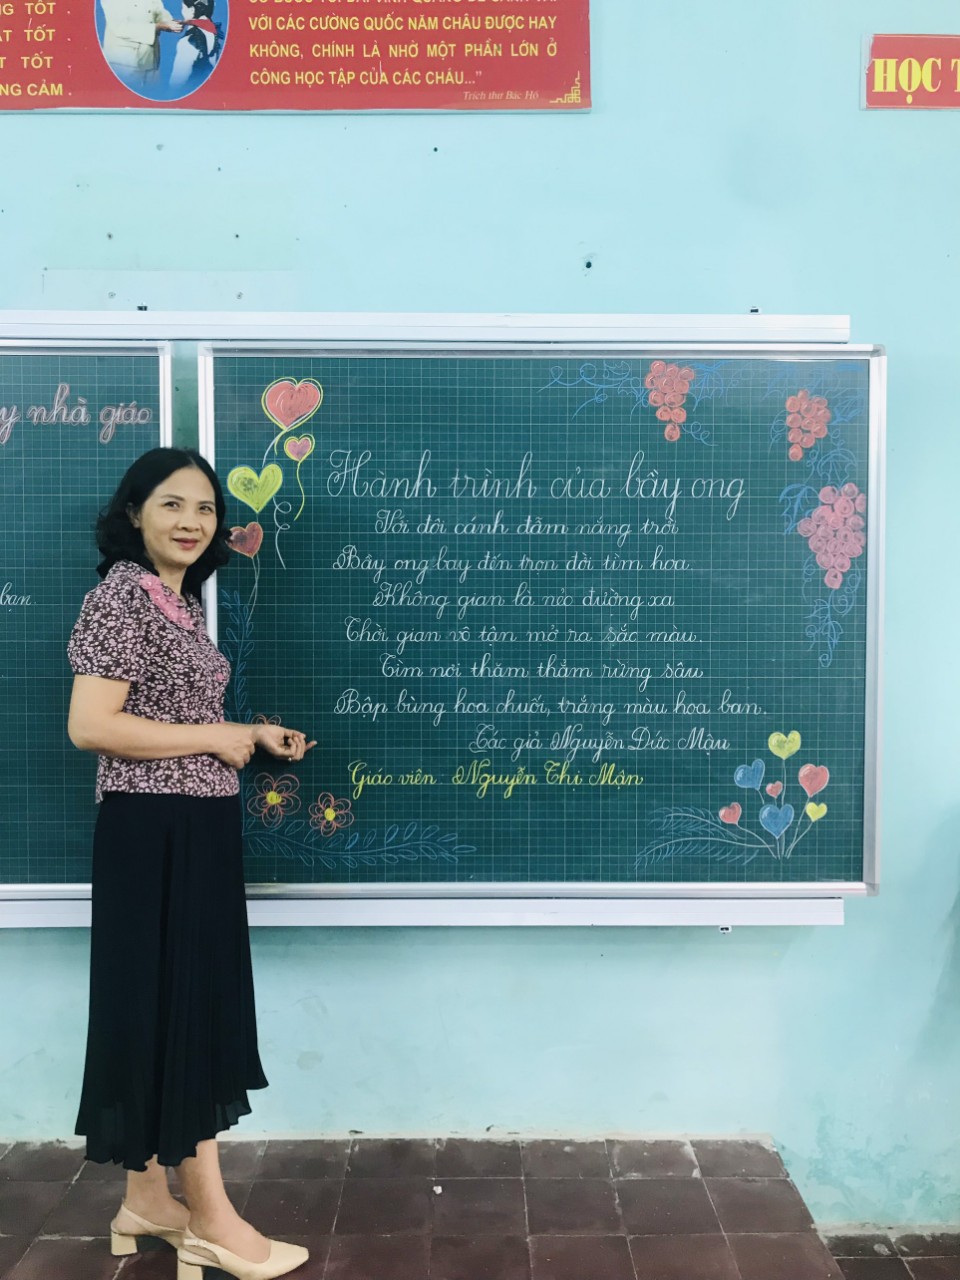 NG TỐT .
ẬT TỐT .
T TỐT .
NG CẢM .
VỚI CÁC CƯỜNG QUỐC NĂM CHÂU ĐƯỢC HAY
KHÔNG, CHÍNH LÀ NHỜ MỘT PHẦN LỚN Ở
CÔNG HỌC TẬP CỦA CÁC CHÁU..."
Trích thư Bác Hồ
HỌC T
y nhà giáo
bạn.
Hành trình của bầy ong
Với đôi cánh đẫm nắng trời
Bầy ong bay đến trọn đời tìm hoa.
Không gian là nẻo đường xa
Thời gian vô tận mở ra sắc màu.
Tìm nơi thăm thẳm rừng sâu
Bập bùng hoa chuối, trắng màu hoa ban.
Tác giả Nguyễn Đức Mậu
Giáo viên: Nguyễn Thị Mận